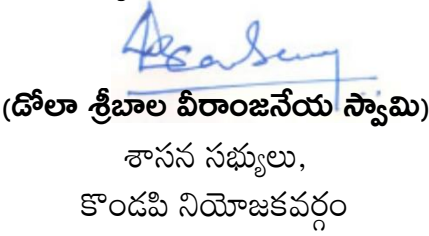 (డోలా శ్రీబాల వీరాంజనేయ స్వామి)
శాసన సభ్యులు,
కొండపి నియోజకవర్గం